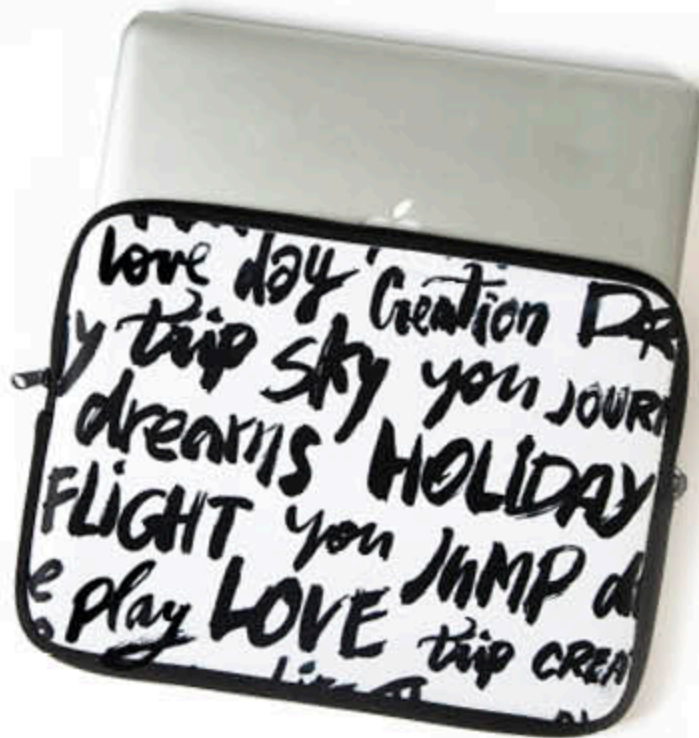 love day Creation DR
y trip sky you JOUR
dreams HOLiDAY
FLiGHT you JuMP
e play LOVE trip CREA